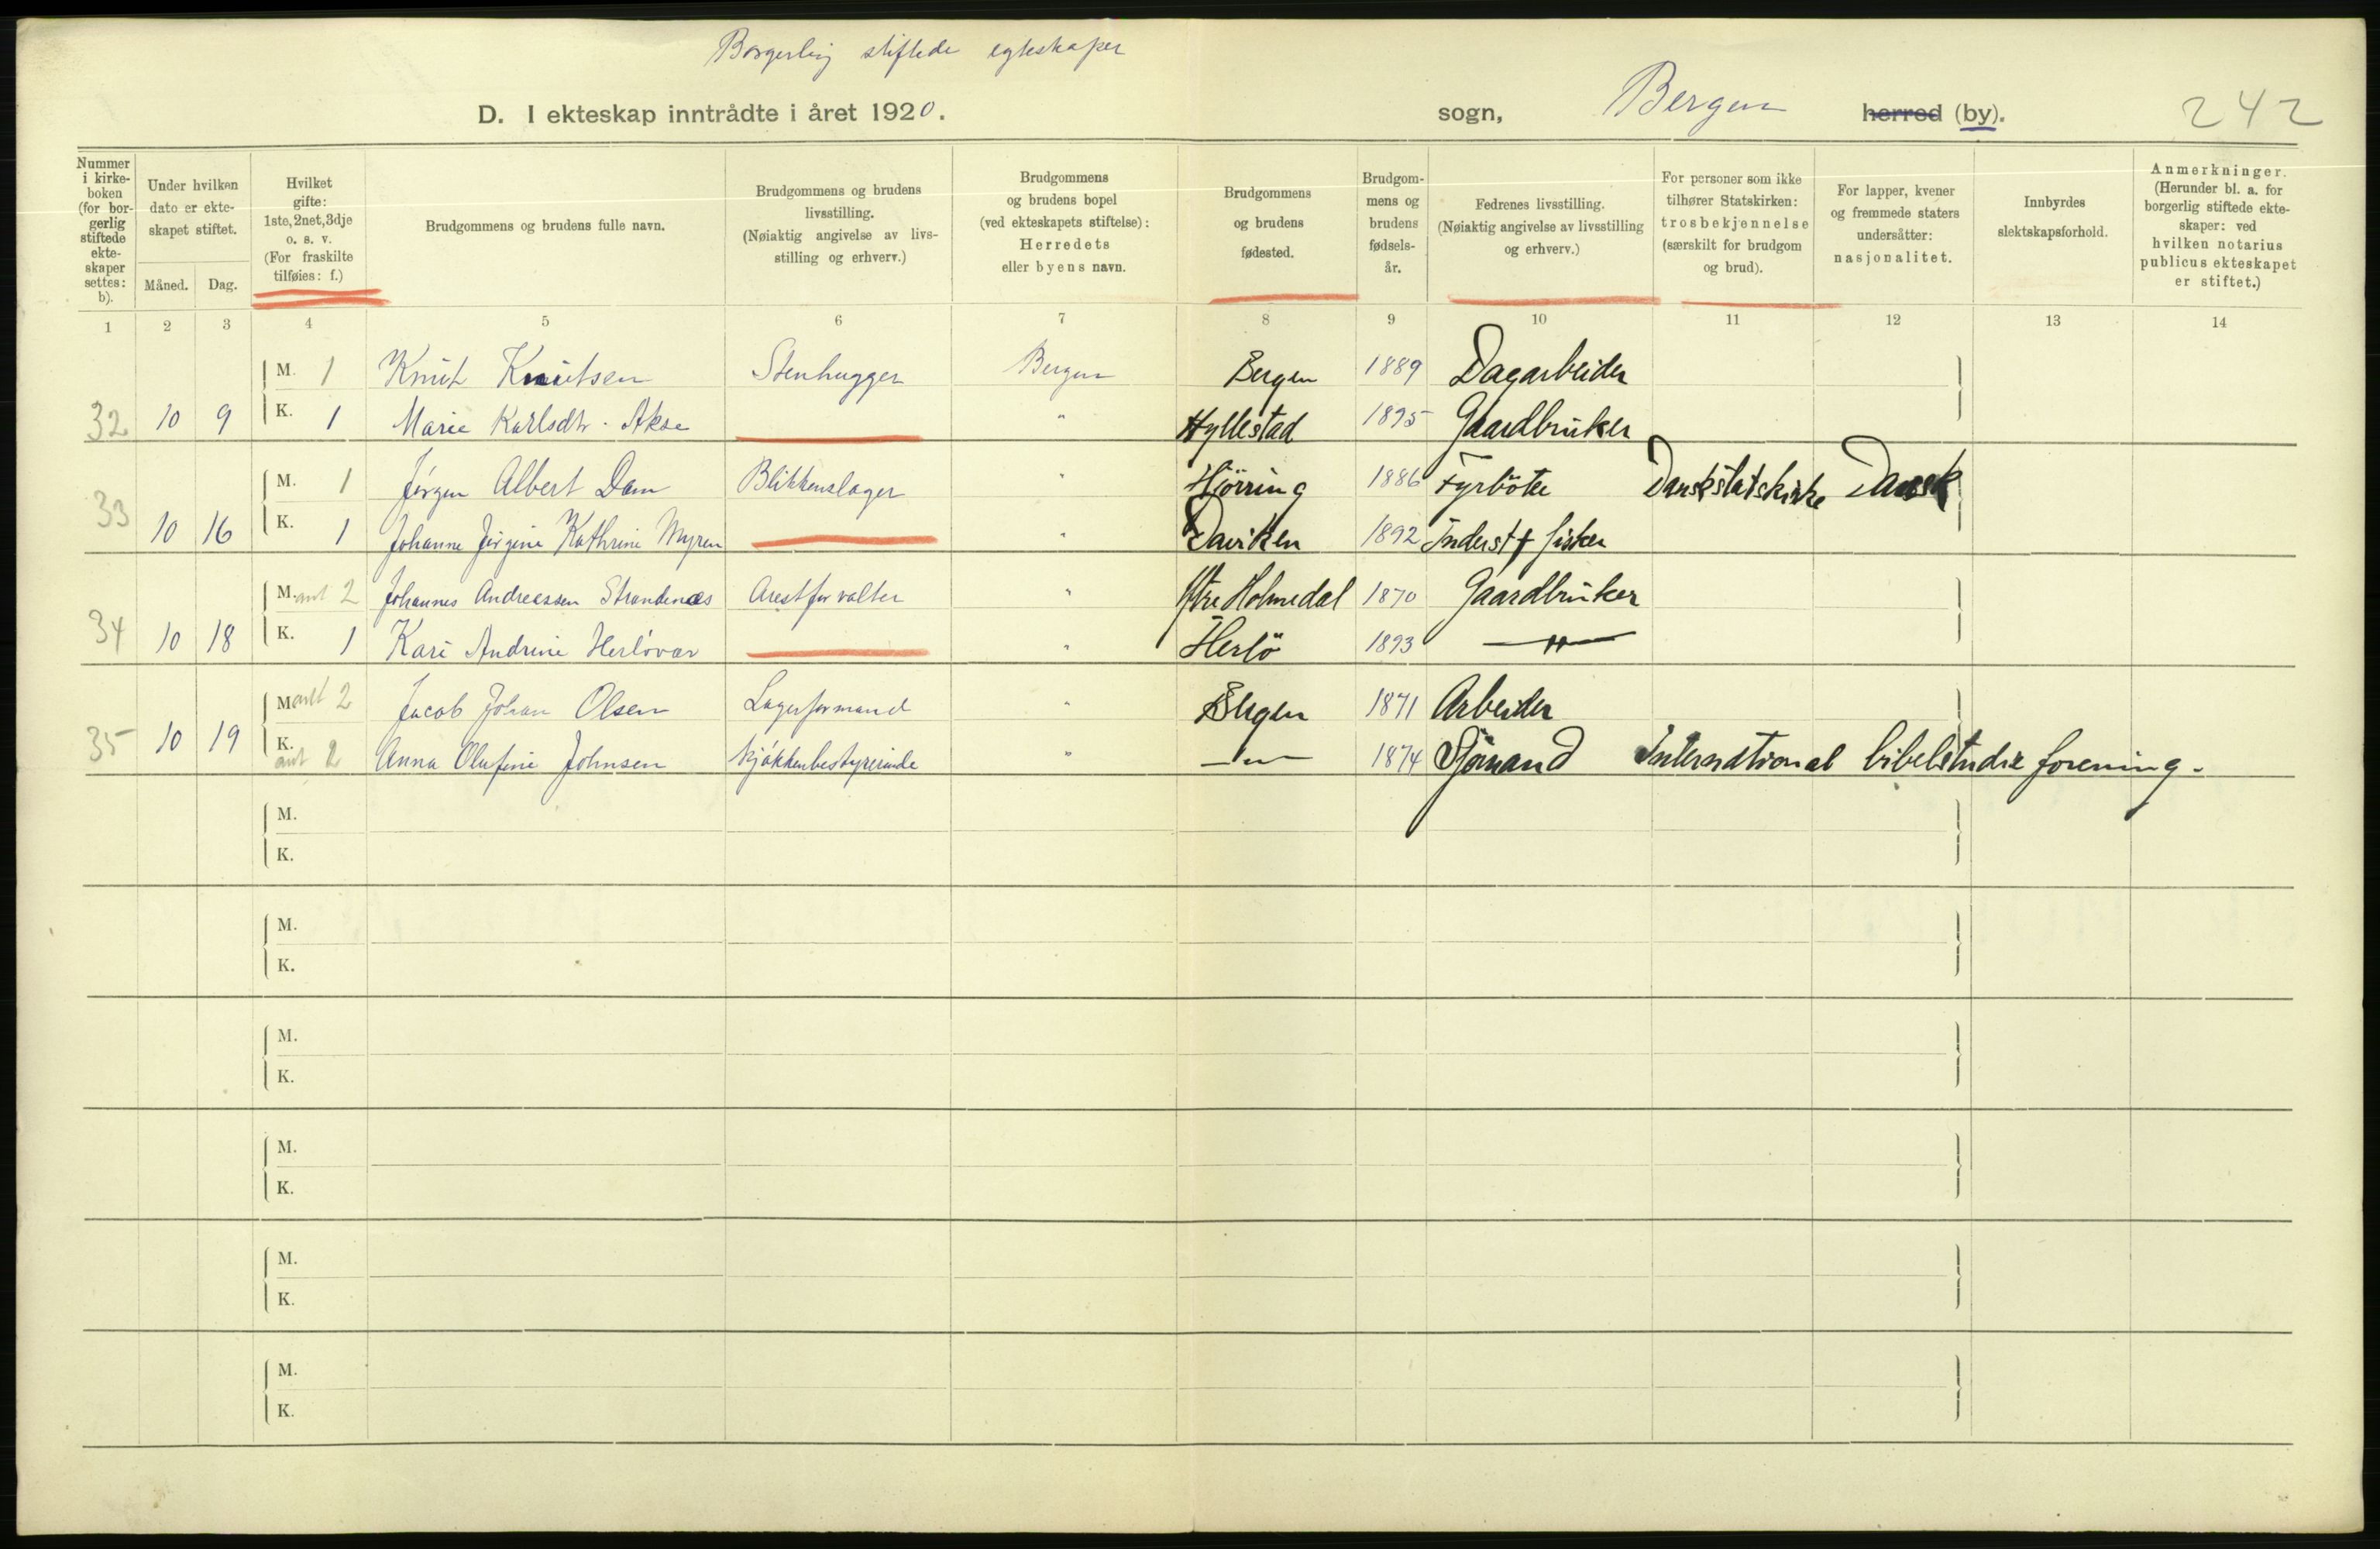 Borgerlig stiftede egteskaper
D. I ekteskap inntrådte i året 1920. sogn, Bergen herred (by). 242
Nummer i kirkeboken (for borgerlig stiftede ekteskaper settes: b).
Under hvilken dato er ekteskapet stiftet.
Måned. Dag.
Hvilket gifte: 1ste, 2net, 3dje o. s. v. (For fraskilte tilføies: f.)
Brudgommens og brudens fulle navn.
Brudgommens og brudens livsstilling. (Nøiaktig angivelse av livsstilling og erhverv.)
Brudgommens og brudens bopel (ved ekteskapets stiftelse): Herredets eller byens navn.
Brudgommens og brudens fødested.
Brudgommens og brudens fødselsår.
Fedrenes livsstilling. (Nøiaktig angivelse av livsstilling og erhverv.)
For personer som ikke tilhører Statskirken: trosbekjennelse (særskilt for brudgom og brud).
For lapper, kvener og fremmede staters undersåtter: nasjonalitet.
Innbyrdes slektskapsforhold.
Anmerkninger. (Herunder bl. a. for borgerlig stiftede ekteskaper: ved hvilken notarius publicus ekteskapet er stiftet.)
1 2 3 4 5 6 7 8 9 10 11 12 13 14
M. 1 Knut Knutsen Stenhugger Bergen Bergen 1889 Dagarbeider
32 10 9 K. 1 Marie Karlsdtr. Akse " Hyllestad 1895 Gaardbruker
M. 1 Jörgen Albert Dam Blikkenslager " Hjörring 1886 Fyrböter Dansk statskirke Dansk
33 10 16 K. 1 Johanne Jörgine Kathrine Myren " Daviken 1892 Inderst f fisker
M. ant 2 Johannes Andreassen Strandenæs Arestforvalter " Ytre Holmedal 1870 Gaardbruker
34 10 18 K. 1 Kari Andrine Herlövær " Herlö 1893 — " —
M. ant 2 Jacob Johan Olsen Lagerformand " Bergen 1871 Arbeider
35 10 19 K. ant 2 Anna Olufine Johnsen Kjökkenbestyrerinde " — " — 1874 Sjömand International bibelstudie forening.
M.
K.
M.
K.
M.
K.
M.
K.
M.
K.
M.
K.